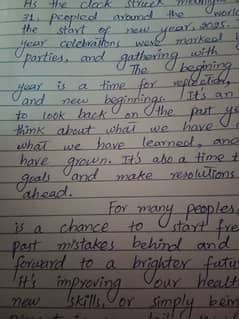 As the clock struck midnight
31, peopled around the world
the start of new year, 2025.
year celebrations were marked
parties, and gathering with
The begining
year is a time for reflection,
and new beginnings. It's an
to look back on the past ye
think about what we have
what we have learned, and
have grown. It's also a time t
goals and make resolutions
ahead.
For many peoples,
is a chance to start fre
past mistakes behind and
forward to a brighter futu
it's improving our healt
new skills, or simply bein